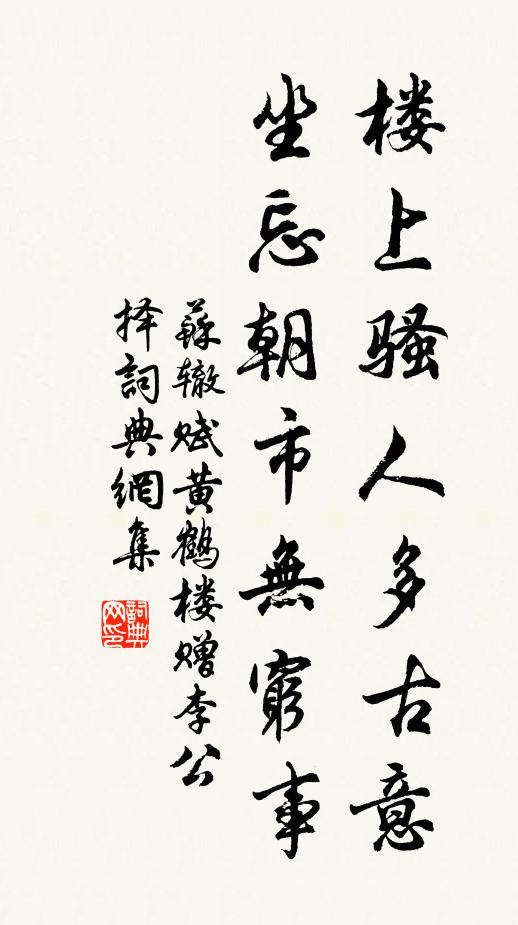 楼上骚人多古意
坐忘朝市無窮事
蘇辙赋黄鶴楼赠李公
择詞典網集
詞典网印